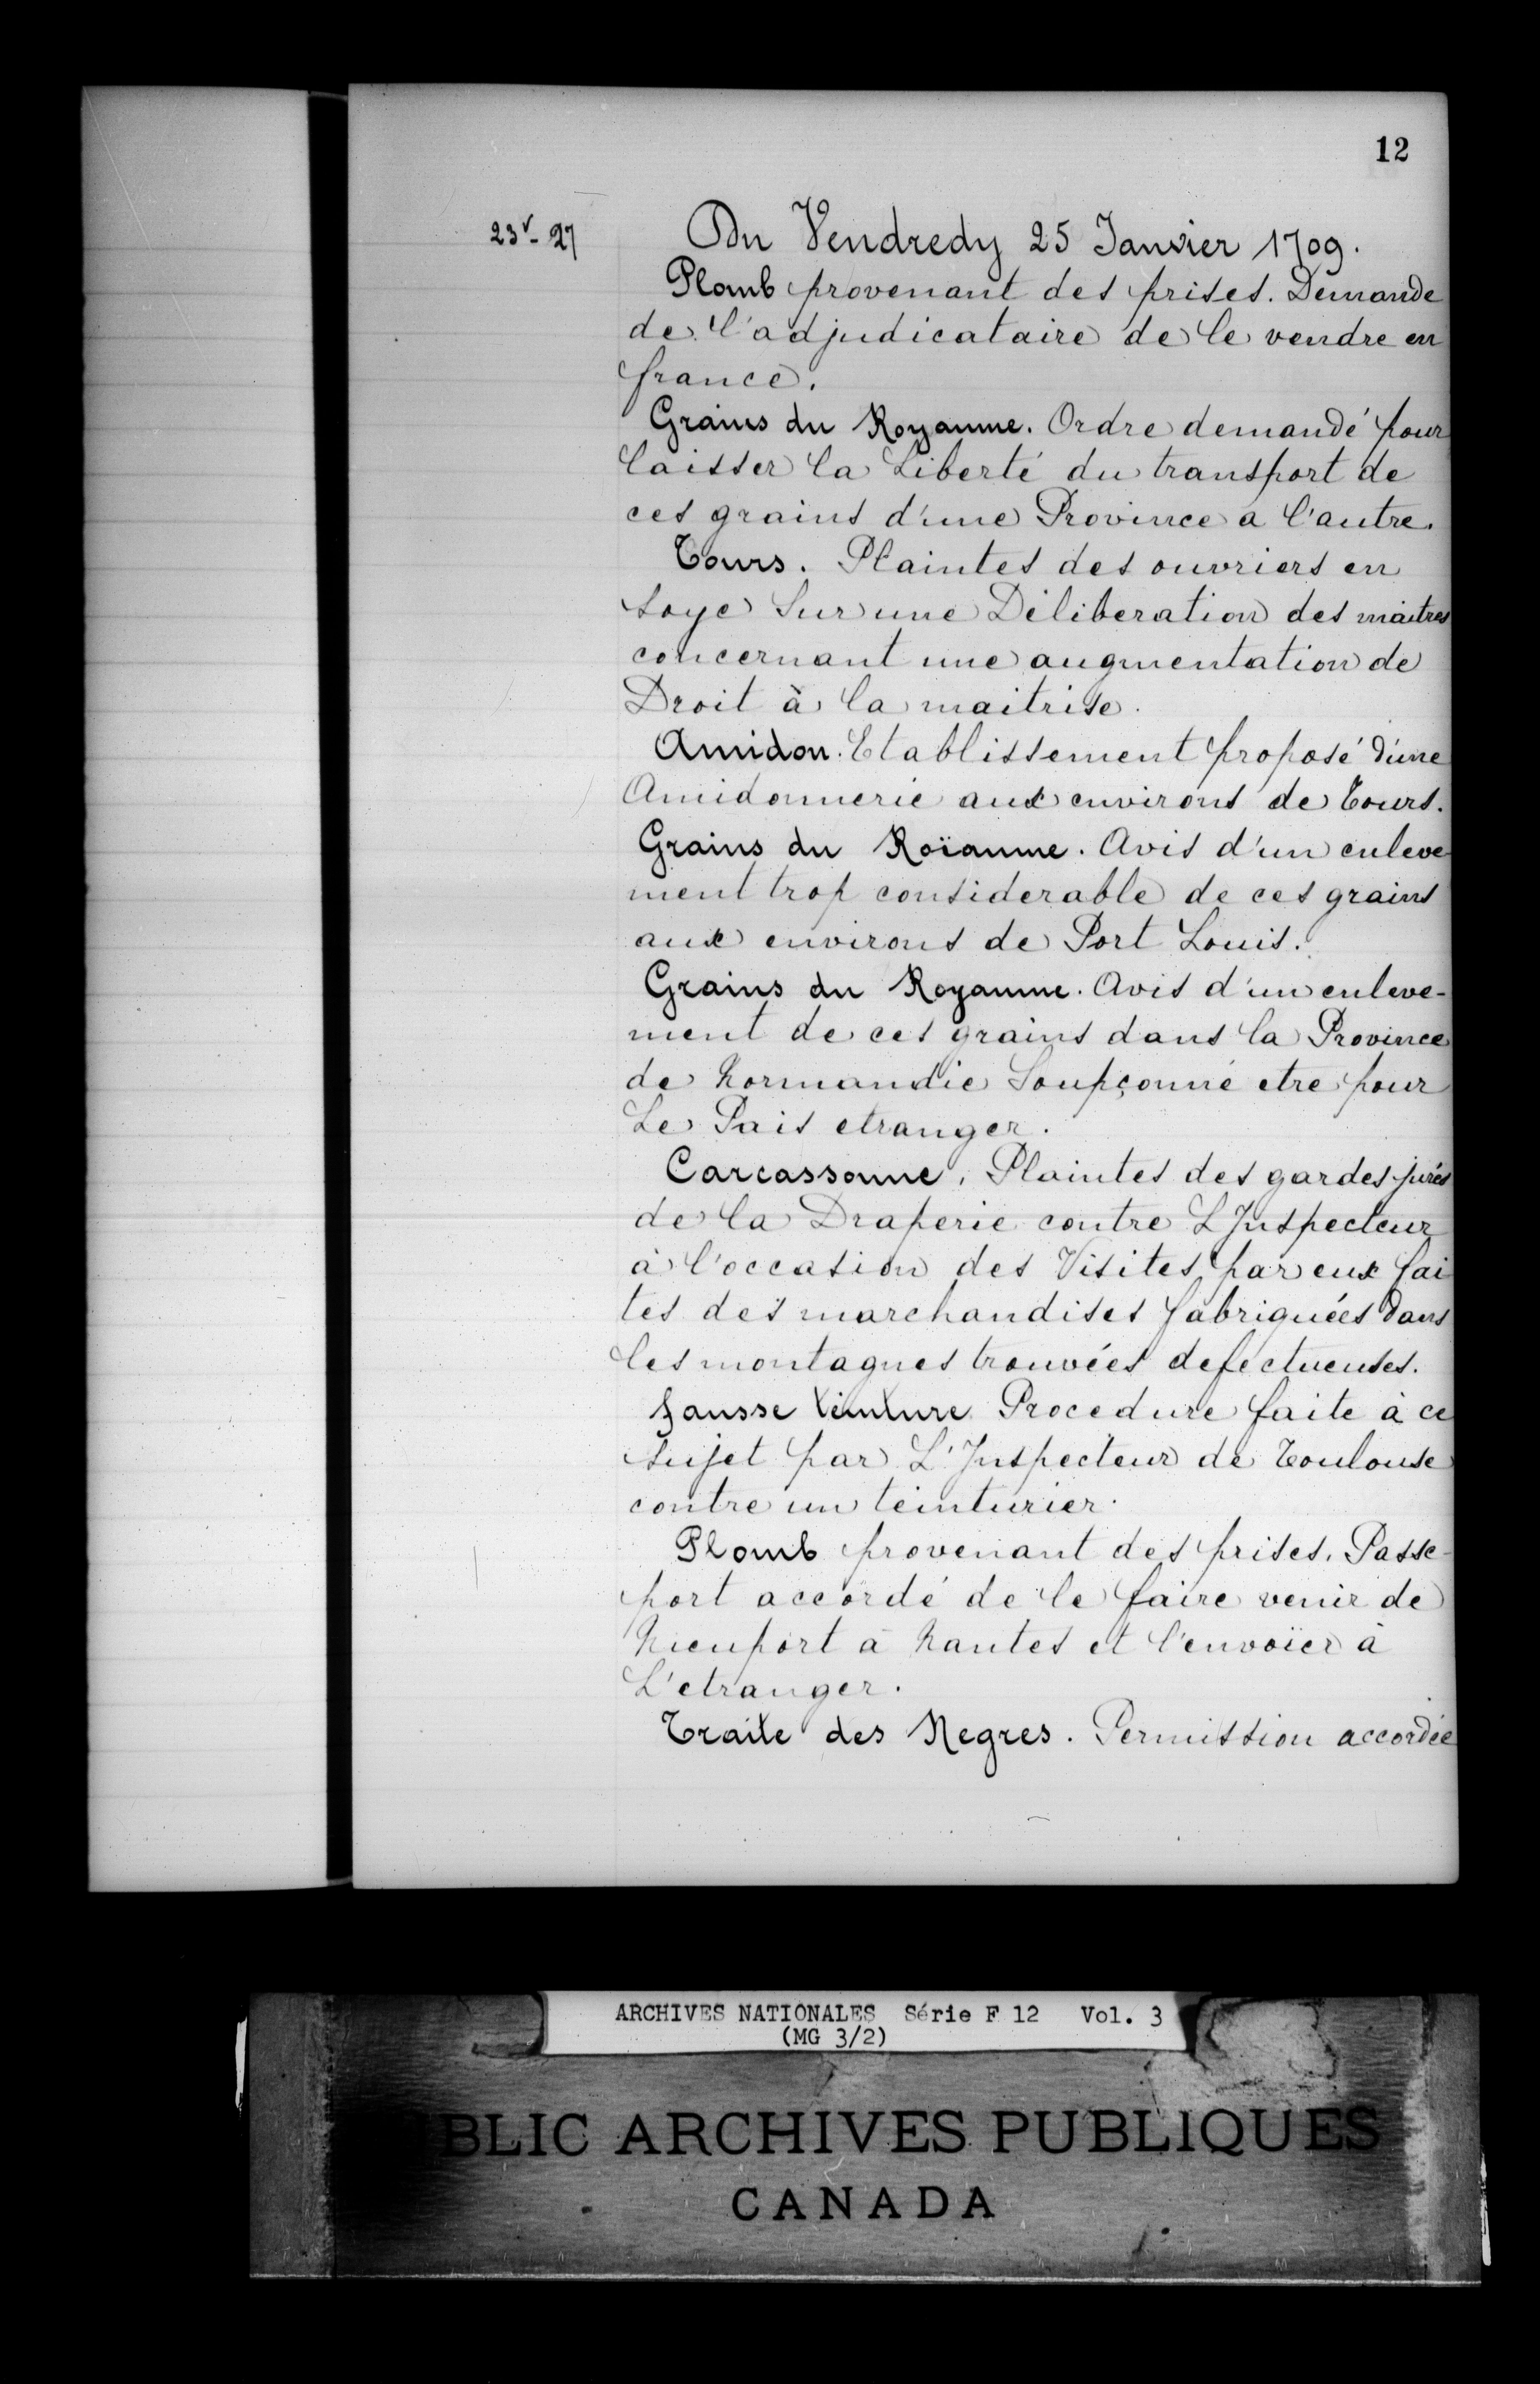 12
23v - 27
Du Vendredy 25 Janvier 1709.
Plomb provenant des prises. Demande
de l'adjudicataire de le vendre en
france.
Grains du Royaume. Ordre demandé pour
laisser la Liberté du transport de
ces grains d'une Province a l'autre.
Tours. Plaintes des ouvriers en
soye sur une Déliberation des maitres
concernant une augmentation de
Droit à la maitrise.
Amidon. Etablissement proposé d'une
Amidonnerie aux environs de Tours.
Grains du Roïaume. Avis d'un enleve-
ment trop considerable de ces grains
aux environs de Port Louis.
Grains du Royaume. Avis d'un enleve-
ment de ces grains dans la Province
de Normandie Soupçonné etre pour
Le Pais etranger.
Carcassonne. Plaintes des gardes jurés
de la Draperie contre L'Inspecteur
à l'occasion des Visites par eux fai
tes des marchandises fabriquées dans
les montagnes trouvées defectueuses.
fausse teinture Procedure faite à ce
sujet par L'Inspecteur de Toulouse
contre un teinturier.
Plomb provenant des prises. Passe-
port accordé de le faire venir de
Nieuport à Nantes et l'envoïer à
L'etranger.
Traite des Negres. Permission accordée
ARCHIVES NATIONALES Série F 12 Vol. 3
(MG 3/2)
BLIC ARCHIVES PUBLIQUES
CANADA